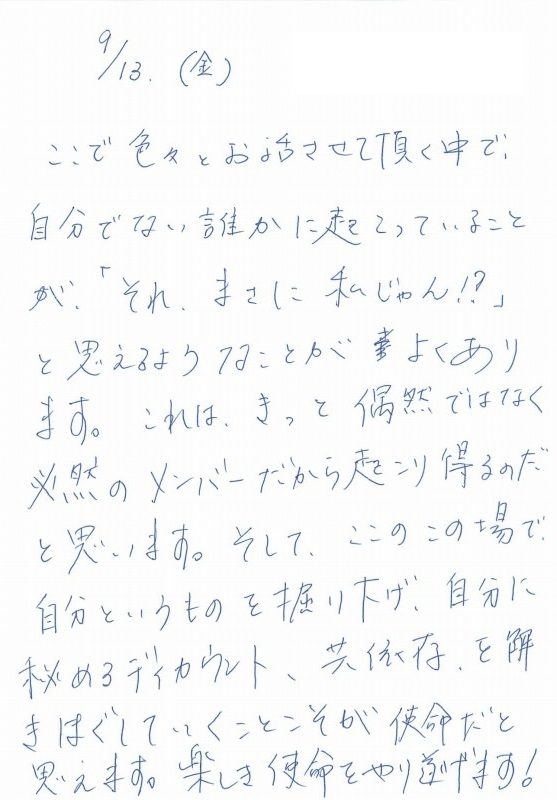 9/13.（金）
ここで色々とお話させて頂く中で、
自分でない誰かに起こっていること
が、「それ、まさに私じゃん!?」
と思えるようなことがよくあり
ます。これは、きっと偶然ではなく
必然のメンバーだから起こり得るのだ
と思います。そして、ここのこの場で、
自分というものを掘り下げ、自分に
秘めるディカウント、共依存、を解
きほぐしていくことこそが使命だと
思えます。楽しき使命をやり遂げます!